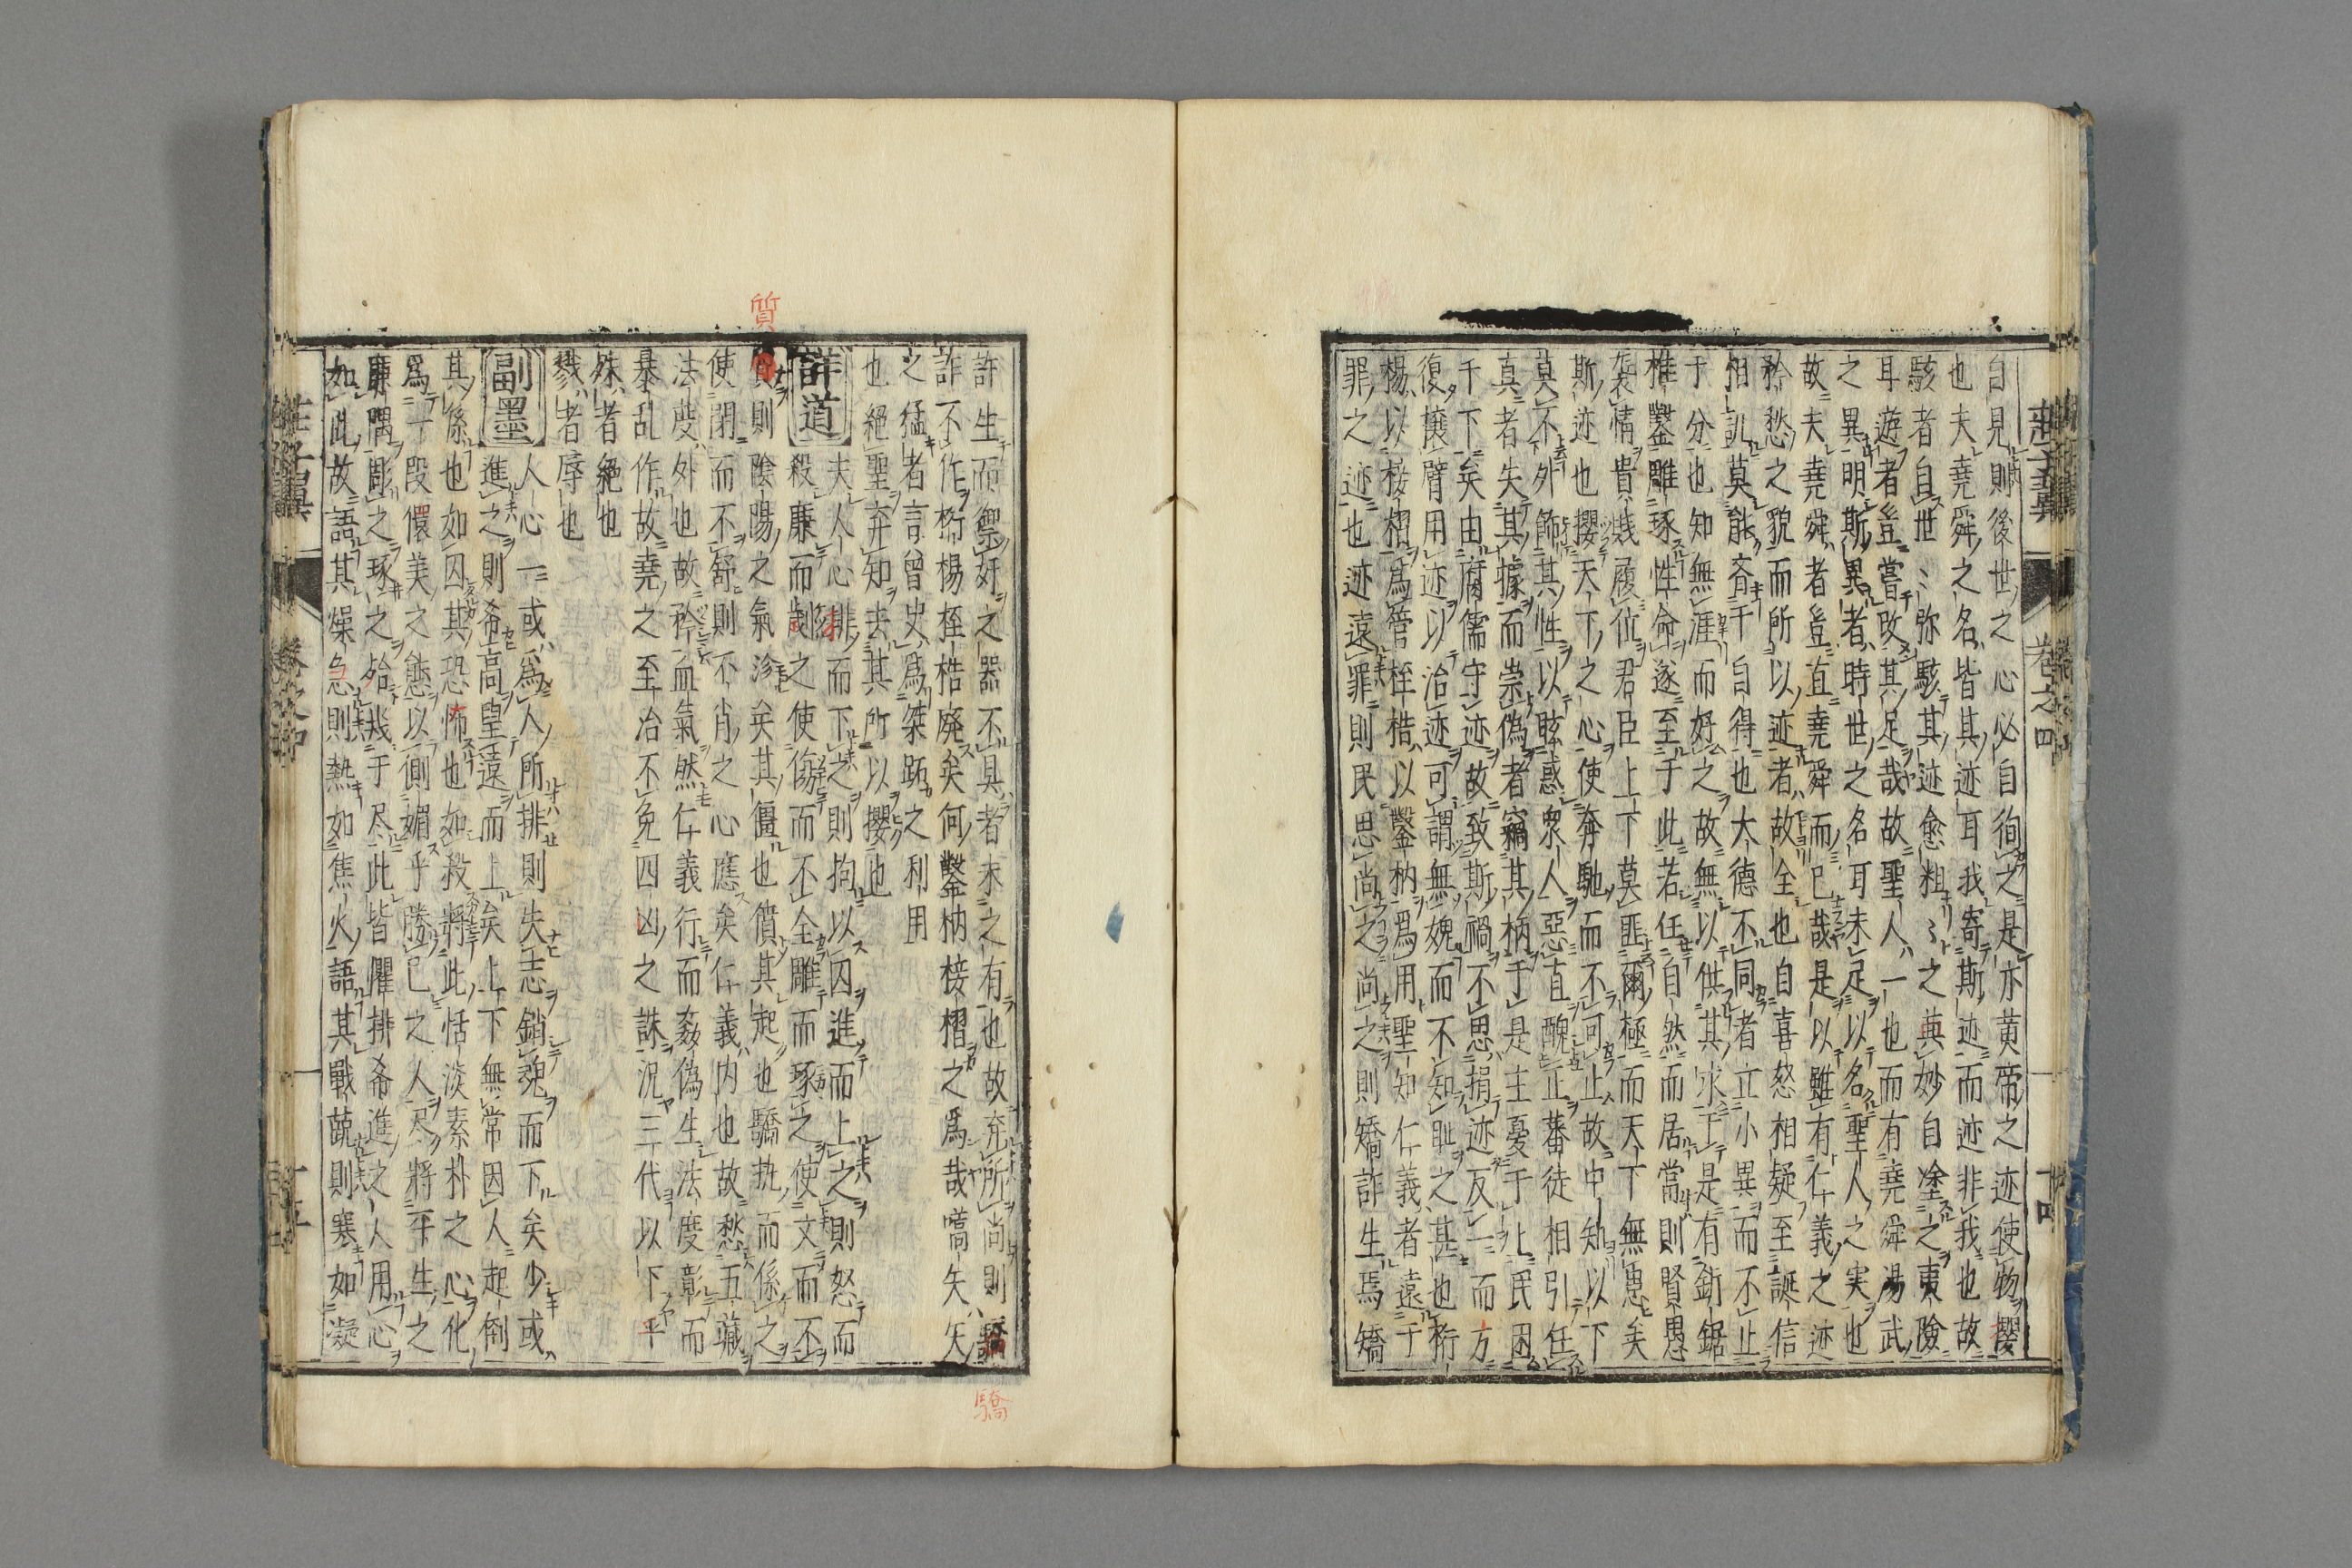 自見則後世之心必自徇之是亦黄帝之迹使物攖
也夫堯舜之名皆其迹耳我寄斯迹而迹非我也故
駭者自世〻弥駭其迹愈粗〻之與妙自塗之夷險
耳遊者豈嘗改其足哉故聖人一也而有堯舜湯武
之異明斯異者時世之名耳未足以名聖人之実也
故夫堯舜者豈直堯舜而已哉是以雖有仁義之迹
矜愁之貌而所以迹者故全也自喜怒相疑至誕信
相訊莫能斉于自得也大德不同者立小異而不止
于分也知無涯而好之故無以供其求于是有釿鋸
椎鑿雕琢性命遂至于此若任自然而居當則賢愚
襲情貴賤履位君臣上下莫匪爾極而天下無患矣
斯迹也攖天下之心使奔馳而不可止故中知以下
莫不外飾其性以眩惑衆人惡直醜正蕃徒相引任
真者失其據而崇偽者竊其柄于是主憂于上民困
于下矣由腐儒守迹故致斯禍不思捐迹反一而方
復攘臂用迹以治迹可謂無媿而不知耻之甚也桁
楊以椄槢為管桎梏以鑿枘為用聖知仁義者遠于
罪之迹也迹遠罪則民思尚之尚之則矯詐生焉矯
莊子翼
卷之四
十四
詐生而禦奸之器不具者未之有也故充所尚則驕
詐不作桁楊桎梏廃矣何鑿枘椄槢之為哉嚆矢矢
之猛者言曾史為桀跖之利用
也絕聖弃知去其所以攖也
詳道 夫人心排而下之則拘以囚進而上之則怒而
殺廉而劌之使傷而不全雕而琢之使文而不
質 則陰陽之氣沴矣其僵也僨其起也驕执而係之
使閉而不舒則不肖之心應矣仁義内也故愁五藏
法度外也故矜血氣然仁義行而姦偽生法度彰而
暴乱作故堯之至治不免四凶之誅況三代以下乎
殊者絕也
戮者辱也
副墨 人心一或為人所排則失志銷魂而下矣少或
進之則希高望遠而上矣上下無常因人起倒
其係也如囚其恐怖也如殺將此恬淡素朴之心化
為一段儇美之態以側媚乎勝已之人尽將平生之
廉隅彫之琢之殆幾于尽此皆懼排希進之人用心
如此故語其燥急則熱如焦火語其戰兢則寒如凝
驕